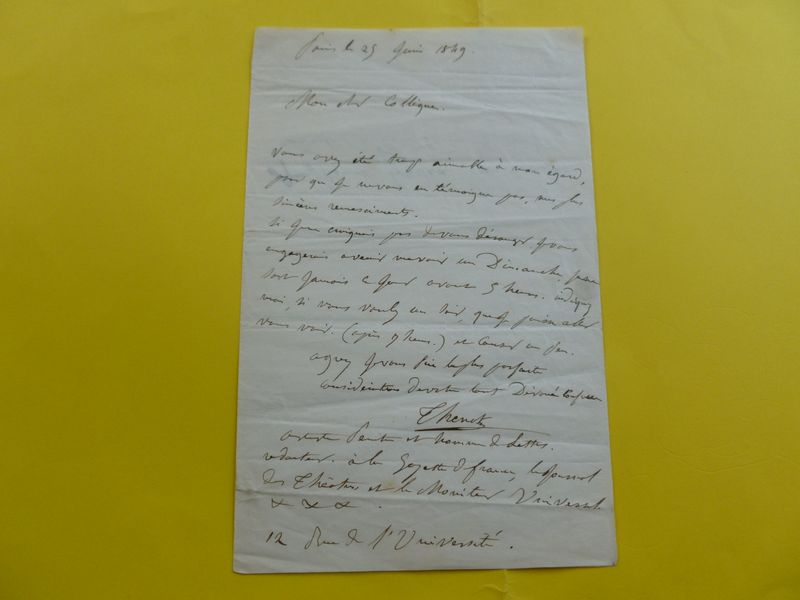 Paris le 25 Juin 1849.
Mon cher Collègue.
Vous avez été trop aimable à mon égard,
pour que je ne vous en témoigne pas, mes plus
sincères remerciments.
Si je ne craignais pas de vous déranger je vous
engagerais a venir me voir un Dimanche,
sort jamais ce jour avant 5 heures. indiquez
moi, si vous voulez un soir, que je puisse aller
vous voir. (après 9 heures.) et causer un peu.
agréez je vous prie la plus parfaite
considération de votre tout Dévoué
Thenot
artiste Peintre et homme de Lettres.
rédacteur à la Gazette de france, le Journal
des Théâtres et le Moniteur Universel
x x x .
12 Rue de l'Université.